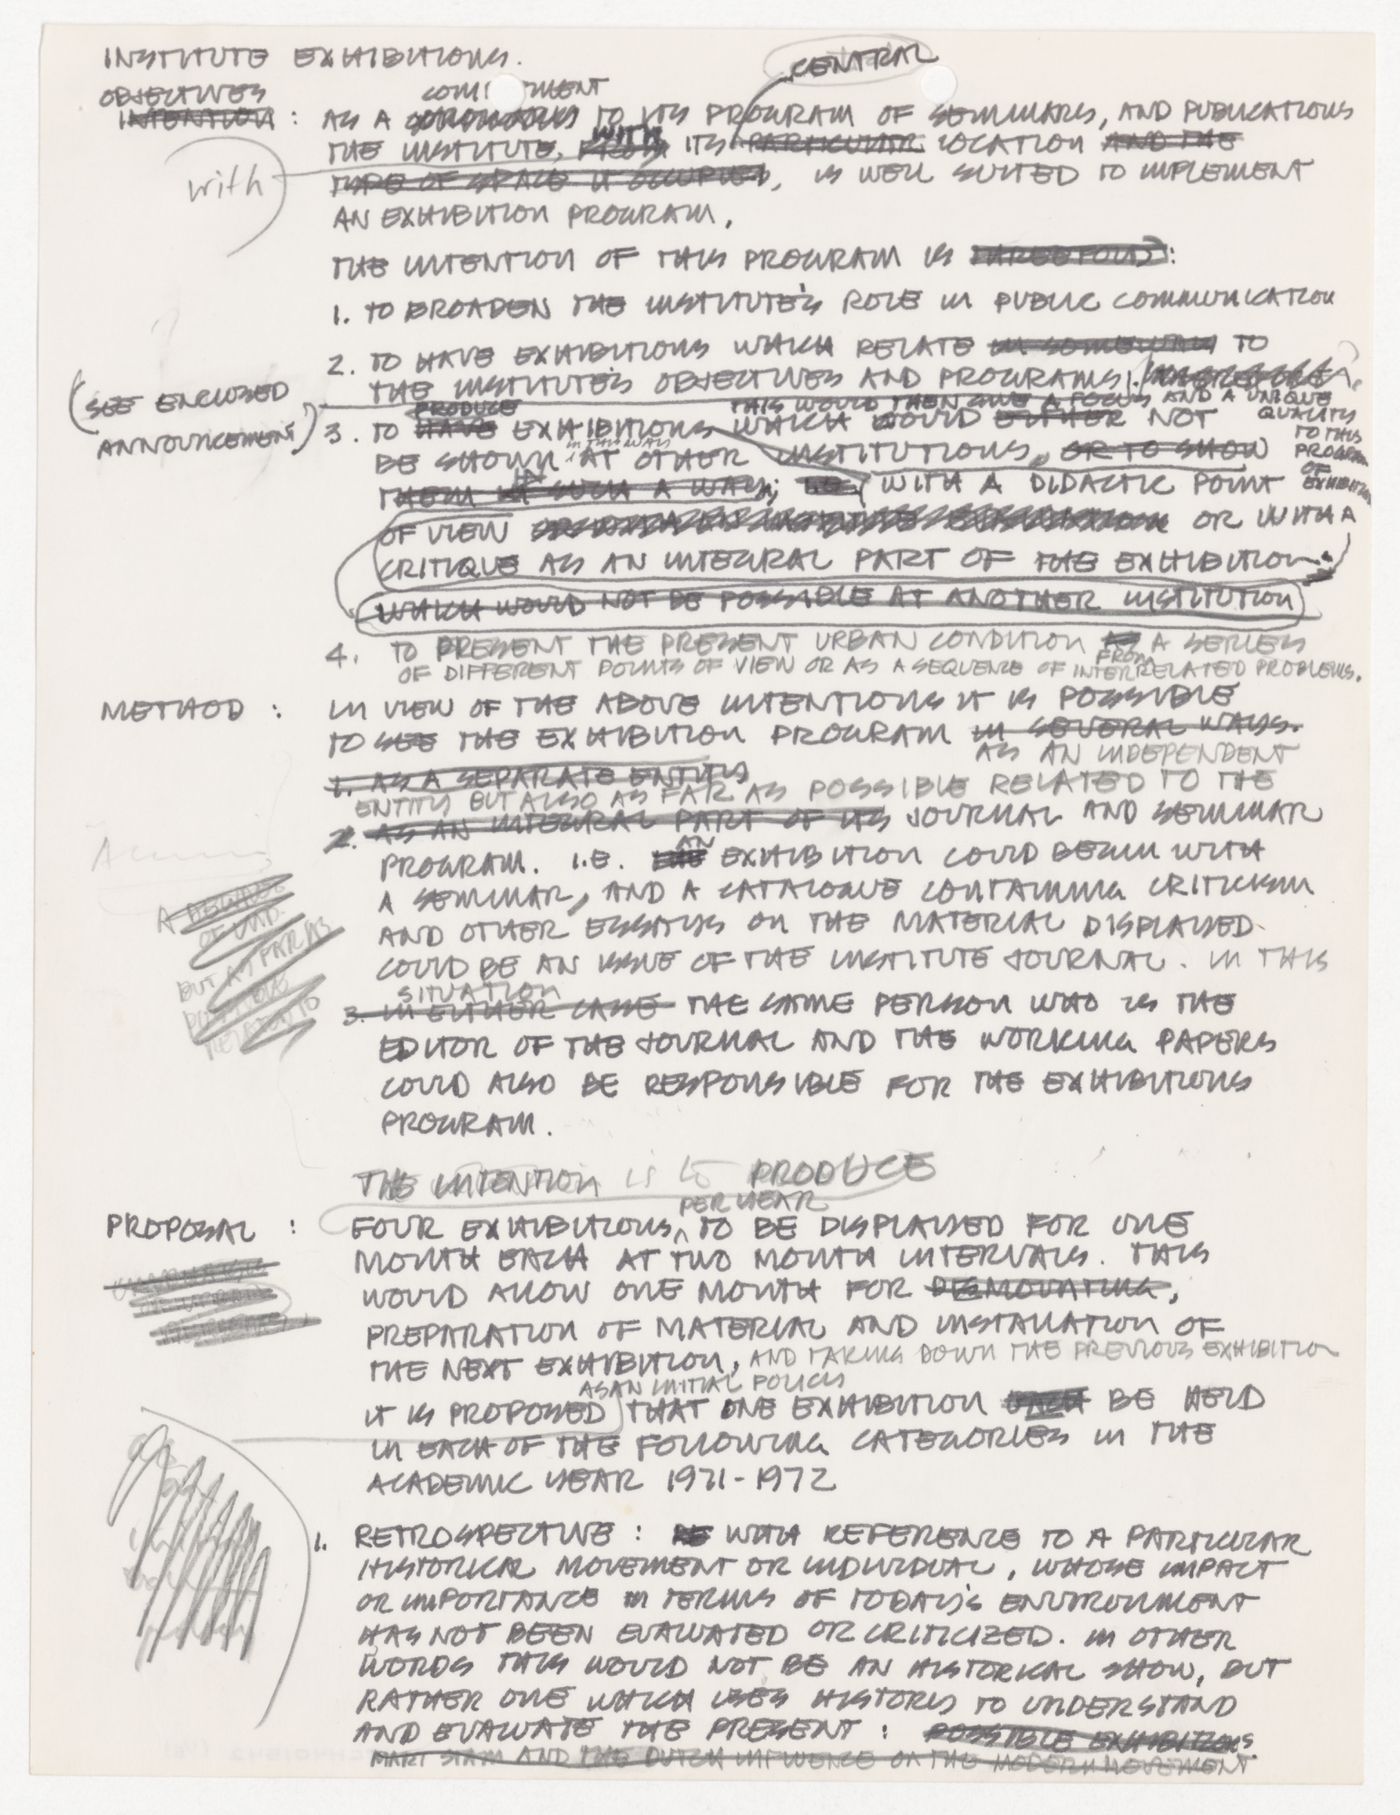 INSTITUTE EXHIBITIONS.
CENTRAL
OBJECTIVES
COMPLIMENT
INTENTION : AS A TO ITS PROGRAM OF SEMINARS, AND PUBLICATIONS
WITH
THE INSTITUTE, FROM ITS PARTICULAR LOCATION AND THE
with
TYPE OF SPACE IT OCCUPIES, IS WELL SUITED TO IMPLEMENT
AN EXHIBITION PROGRAM.
THE INTENTION OF THIS PROGRAM IS THREEFOLD :
1. TO BROADEN THE INSTITUTE'S ROLE IN PUBLIC COMMUNICATION
2. TO HAVE EXHIBITIONS WHICH RELATE IN SOME WAY TO
THE INSTITUTE'S OBJECTIVES AND PROGRAMS.
(SEE ENCLOSED
ANNOUNCEMENT)
THIS WOULD THEN GIVE A FOCUS AND A UNIQUE
QUALITY
TO THIS
PROGRAM
OF
EXHIBITION
PRODUCE
3. TO HAVE EXHIBITIONS WHICH COULD EITHER NOT
IN THIS WAY
BE SHOWN AT OTHER INSTITUTIONS, OR TO SHOW
THEM IN SUCH A WAY; WITH A DIDACTIC POINT
OF VIEW OR WITH A
CRITIQUE AS AN INTEGRAL PART OF THE EXHIBITION.
WHICH WOULD NOT BE POSSIBLE AT ANOTHER INSTITUTION
4. TO PRESENT THE PRESENT URBAN CONDITION AS A SERIES
FROM
OF DIFFERENT POINTS OF VIEW OR AS A SEQUENCE OF INTERRELATED PROBLEMS.
METHOD : IN VIEW OF THE ABOVE INTENTIONS IT IS POSSIBLE
TO SEE THE EXHIBITION PROGRAM IN SEVERAL WAYS.
AS AN INDEPENDENT
1. AS A SEPARATE ENTITY
ENTITY BUT ALSO AS FAR AS POSSIBLE RELATED TO THE
2. AS AN INTEGRAL PART OF ITS JOURNAL AND SEMINAR
AN
PROGRAM. I.E. THE EXHIBITION COULD BEGIN WITH
A SEMINAR, AND A CATALOGUE CONTAINING CRITICISM
AND OTHER ESSAYS ON THE MATERIAL DISPLAYED
COULD BE AN ISSUE OF THE INSTITUTE JOURNAL. IN THIS
BUT AS FAR AS
SITUATION
3. IN EITHER CASE THE SAME PERSON WHO IS THE
EDITOR OF THE JOURNAL AND THE WORKING PAPERS
COULD ALSO BE RESPONSIBLE FOR THE EXHIBITIONS
PROGRAM.
THE INTENTION is to PRODUCE
PER YEAR
PROPOSAL : FOUR EXHIBITIONS, TO BE DISPLAYED FOR ONE
MONTH EACH AT TWO MONTH INTERVALS. THIS
WOULD ALLOW ONE MONTH FOR ,
PREPARATION OF MATERIAL AND INSTALLATION OF
THE NEXT EXHIBITION, AND TAKING DOWN THE PREVIOUS EXHIBITION
AS AN INITIAL POLICY
IT IS PROPOSED THAT ONE EXHIBITION BE HELD
IN EACH OF THE FOLLOWING CATEGORIES IN THE
ACADEMIC YEAR 1971-1972
1. RETROSPECTIVE : WITH REFERENCE TO A PARTICULAR
HISTORICAL MOVEMENT OR INDIVIDUAL, WHOSE IMPACT
OR IMPORTANCE IN TERMS OF TODAY'S ENVIRONMENT
HAS NOT BEEN EVALUATED OR CRITICIZED. IN OTHER
WORDS THIS WOULD NOT BE AN HISTORICAL SHOW, BUT
RATHER ONE WHICH USES HISTORY TO UNDERSTAND
AND EVALUATE THE PRESENT : POSSIBLE EXHIBITIONS.
MART STAM AND THE DUTCH INFLUENCE ON THE MODERN MOVEMENT